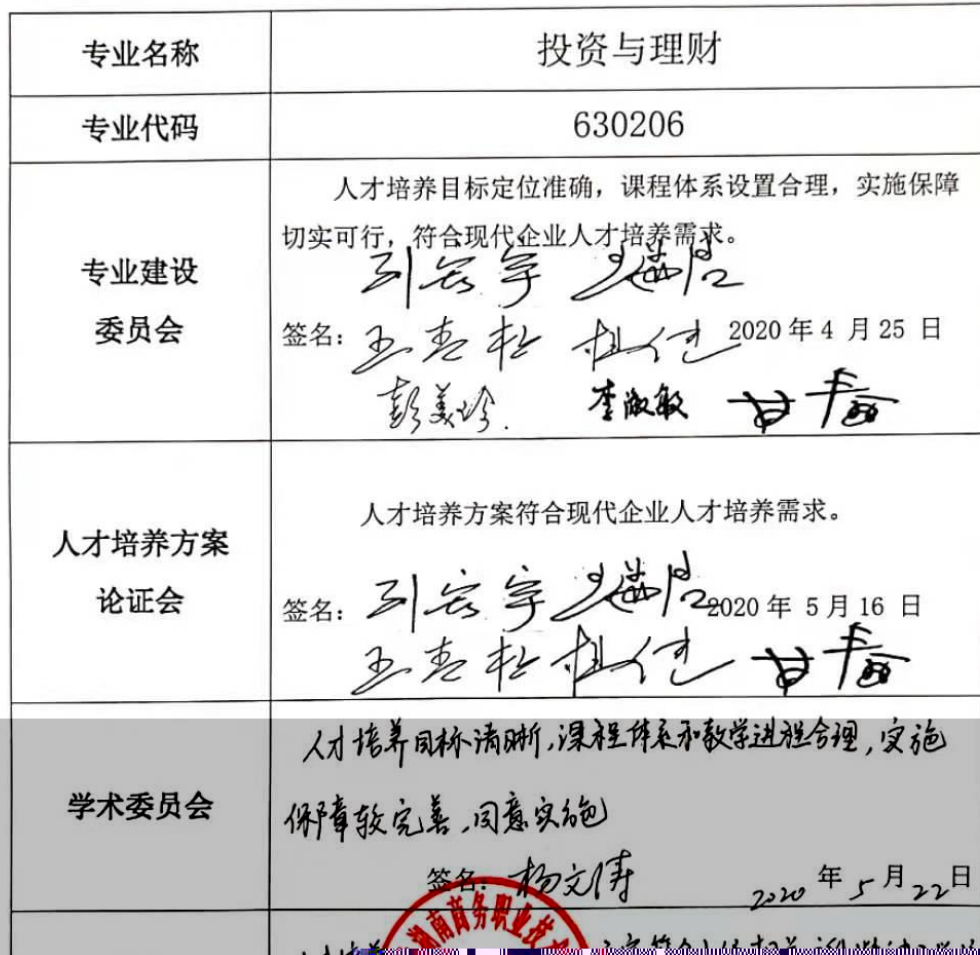 专业名称
投资与理财
专业代码
630206
专业建设
委员会
人才培养目标定位准确，课程体系设置合理，实施保障
切实可行，符合现代企业人才培养需求。
签名：
2020 年 4 月 25 日
彭美珍.
李淑敏
人才培养方案
论证会
人才培养方案符合现代企业人才培养需求。
签名：
2020 年 5 月 16 日
学术委员会
人才培养目标清晰,课程体系和教学进程合理,实施
保障较完善,同意实施
签名：杨文涛
2020 年 5 月 22 日
湖南商务职业技